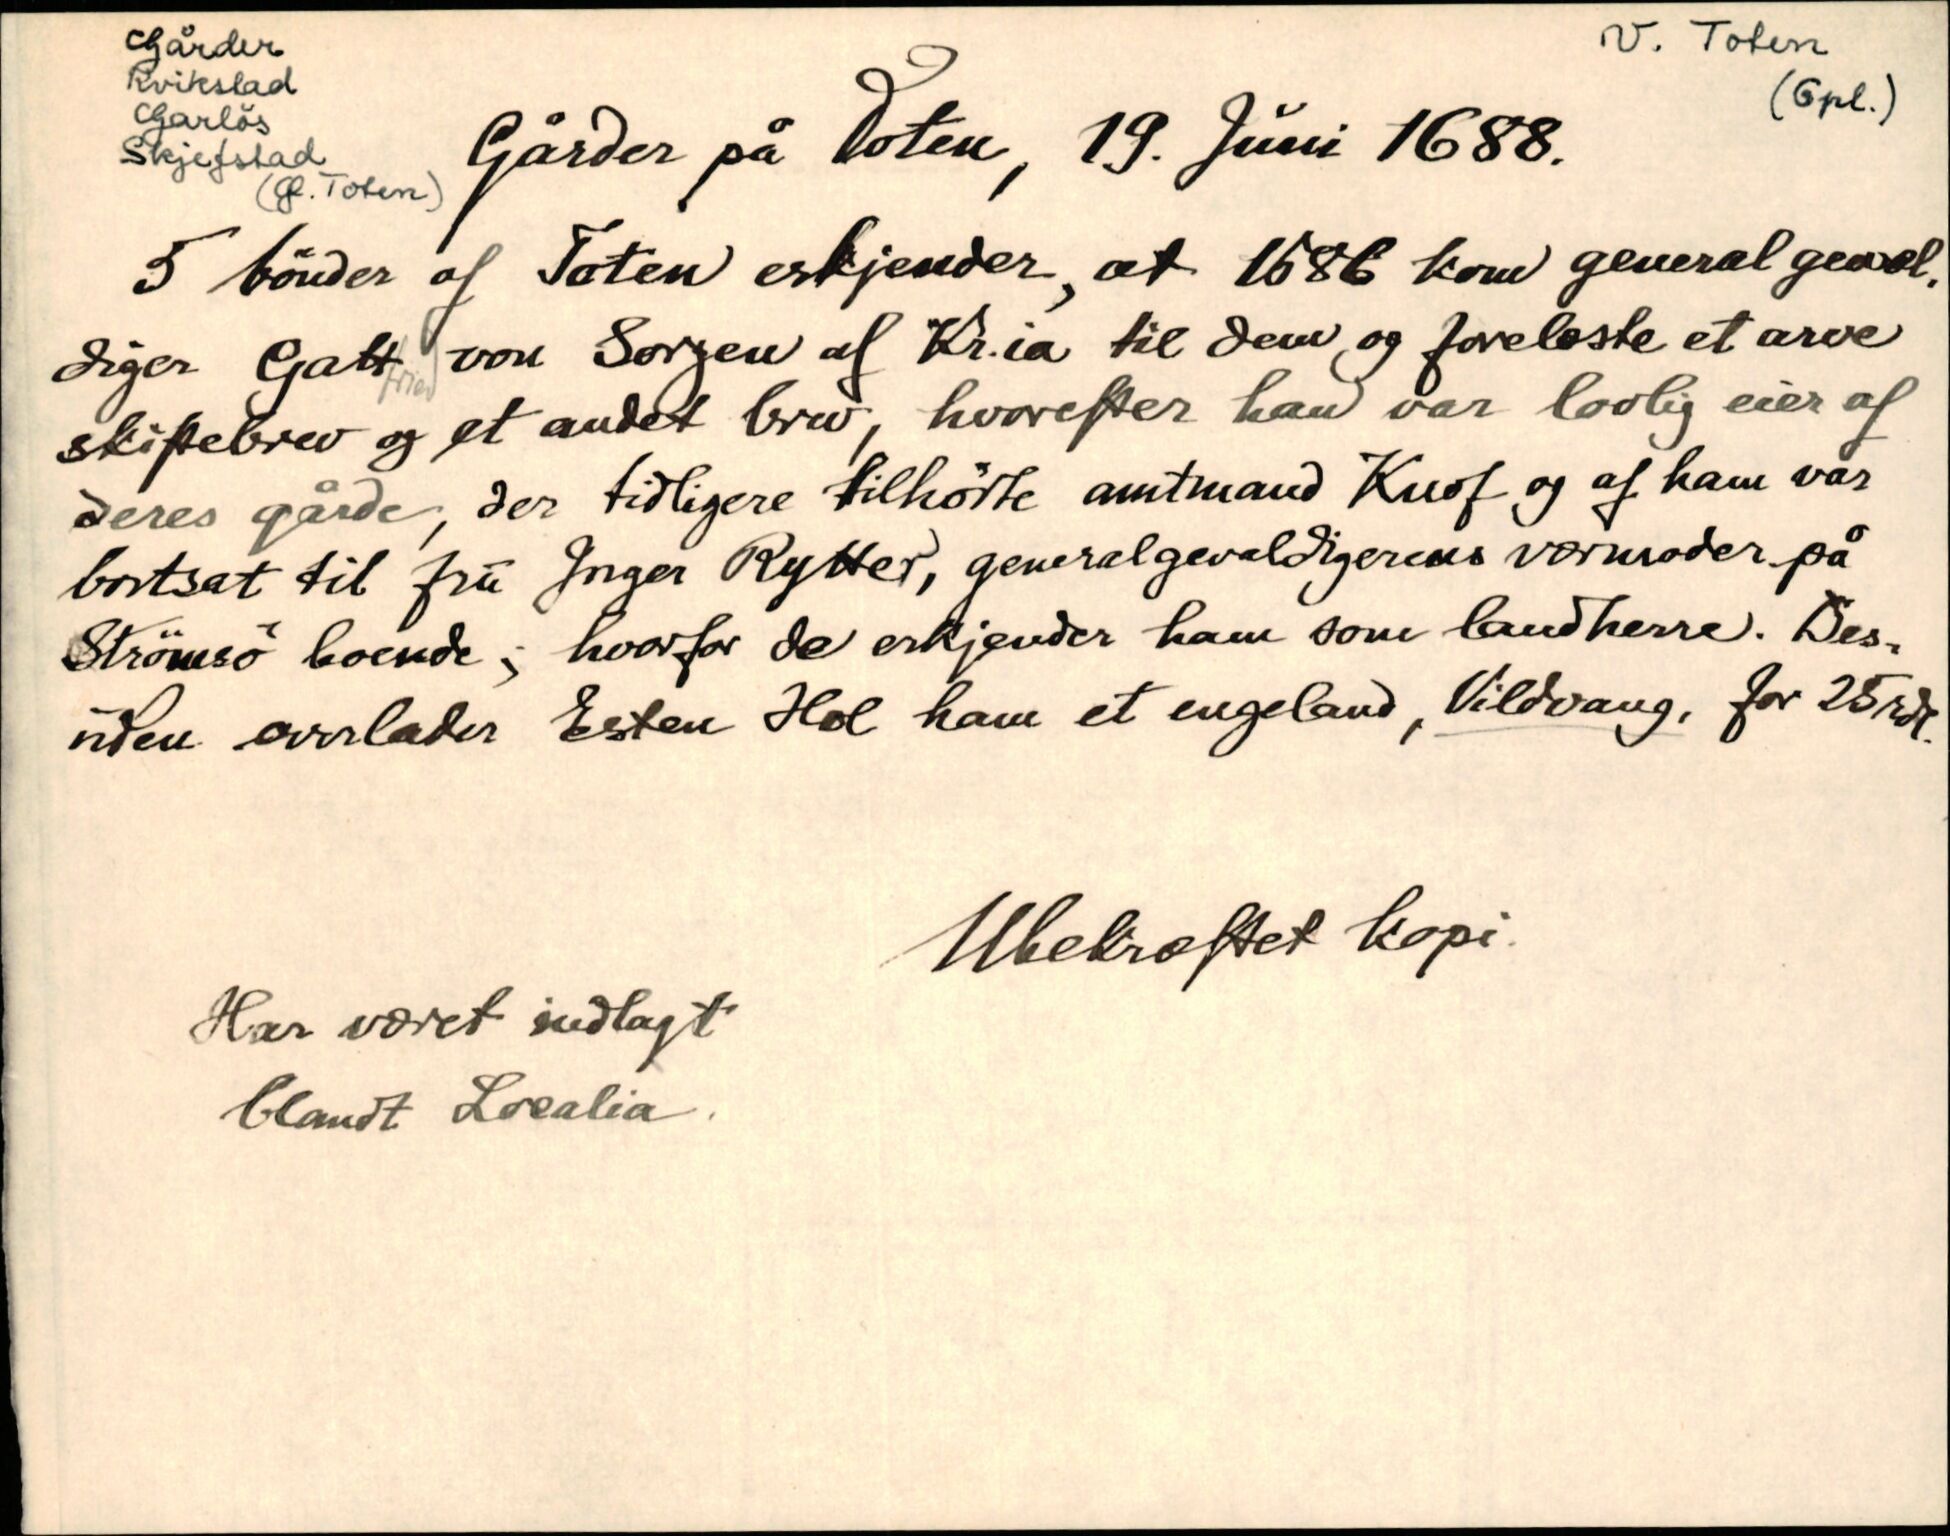 Gårder
Kvikstad
Garlös
Skjefstad
(Ø. Toten)
V. Toten
(Opl.)
Gårder på Toten, 19. Juni 1688.
5 bönder af Toten erkjender, at 1686 kom general geval-
diger Gattfried von Sorgen af Kr.ia til dem og foreleste et arve
skiftebrev og et andet brev, hvorefter han var lovlig eier af
deres gårde, der tidligere tilhörte amtmand Knof og af ham var
bortsat til frü Inger Rytter, generalgevaldigerens værmoder på
Strömsö boende; hvorfor de erkjender ham som landherre. Des-
üden overlader Esten Hol ham et engeland, Vildvang, for 25 rdl.
Ubekræftet kopi.
Har været indlagt
blandt Localia.